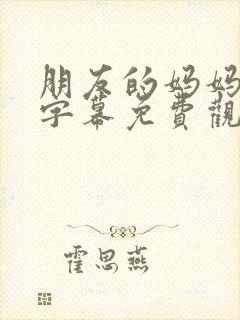 朋友的妈妈
字幕免費觀
霍思燕